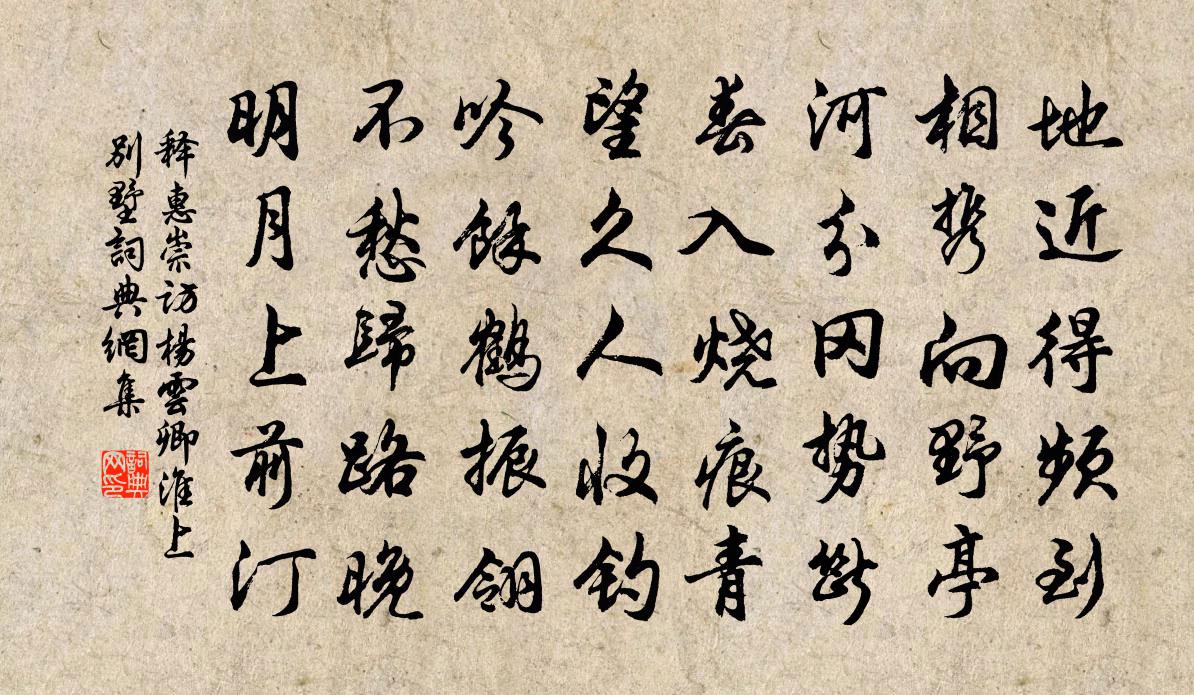 地近得频到
相携向野亭
河分冈势断
春入烧痕青
望久人收钓
吟馀鹤振翎
不愁歸路晚
明月上前汀
释惠崇访楊雲卿淮上
别墅詞典網集
詞典
网印